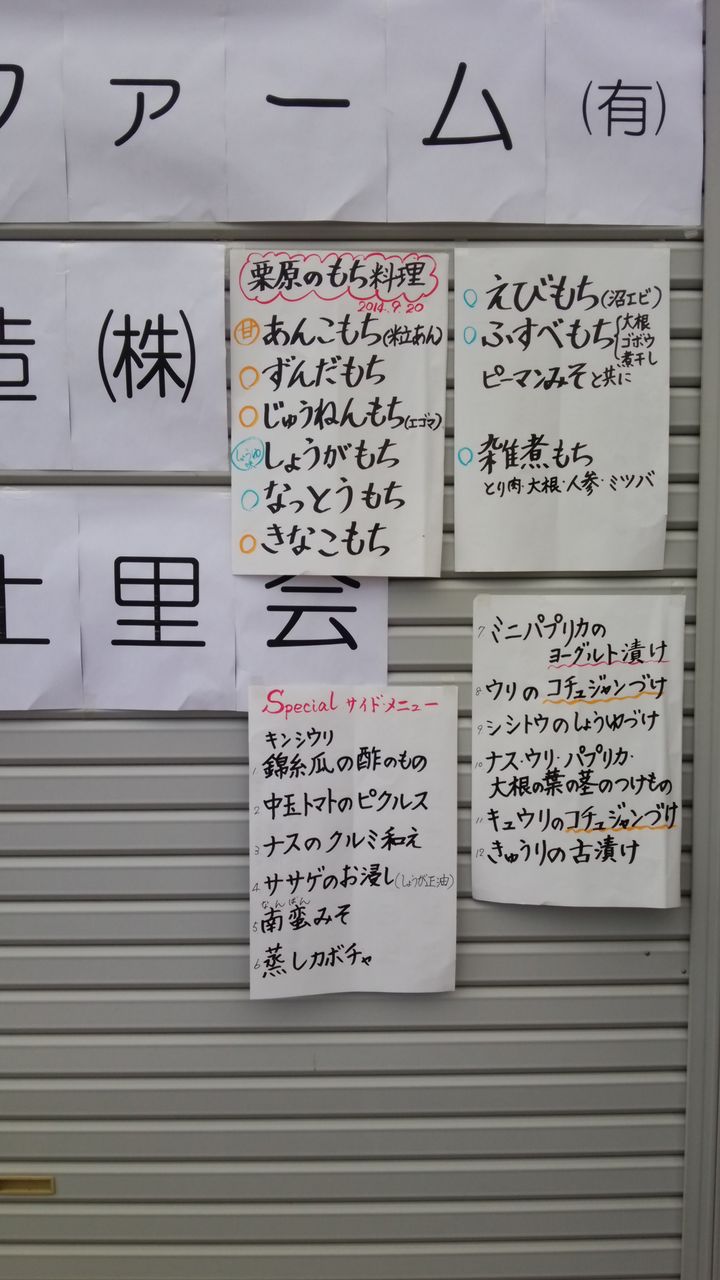 ファーム(有)
造(株)
土里会
栗原のもち料理
2014.9.20
甘 あんこもち(粒あん)
○ ずんだもち
○ じゅうねんもち(エゴマ)
しょうゆ味 しょうがもち
○ なっとうもち
○ きなこもち
○ えびもち(沼エビ)
○ ふすべもち(大根
ゴボウ
煮干し
ピーマンみそと共に
○ 雑煮もち
とり肉・大根・人参・ミツバ
Special サイド・メニュー
キンシウリ
1 錦糸瓜の酢のもの
2 中玉トマトのピクルス
3 ナスのクルミ和え
4 ササゲのお浸し(しょうが正油)
なんばん
5 南蛮みそ
6 蒸しカボチャ
7 ミニパプリカの
ヨーグルト漬け
8 ウリのコチュジャンづけ
9 シシトウのしょうゆづけ
10 ナス・ウリ・パプリカ・
大根の葉の茎のつけもの
11 キュウリのコチュジャンづけ
12 きゅうりの古漬け